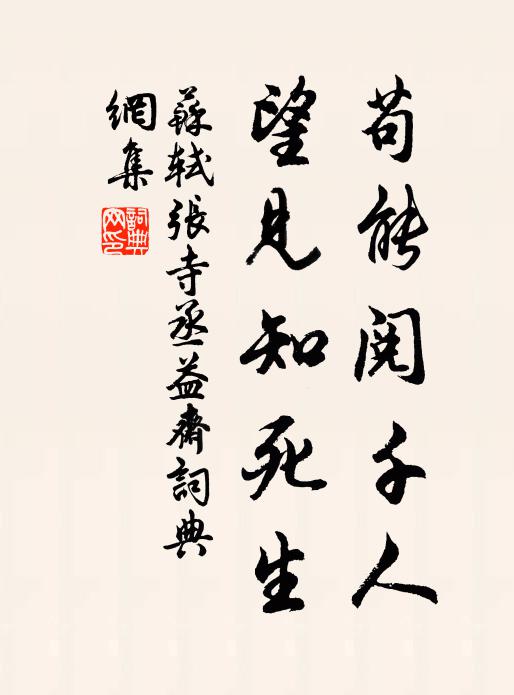 苟能閱千人
望見知死生
蘇軾張寺丞益齋詞典
網集
詞典
网印